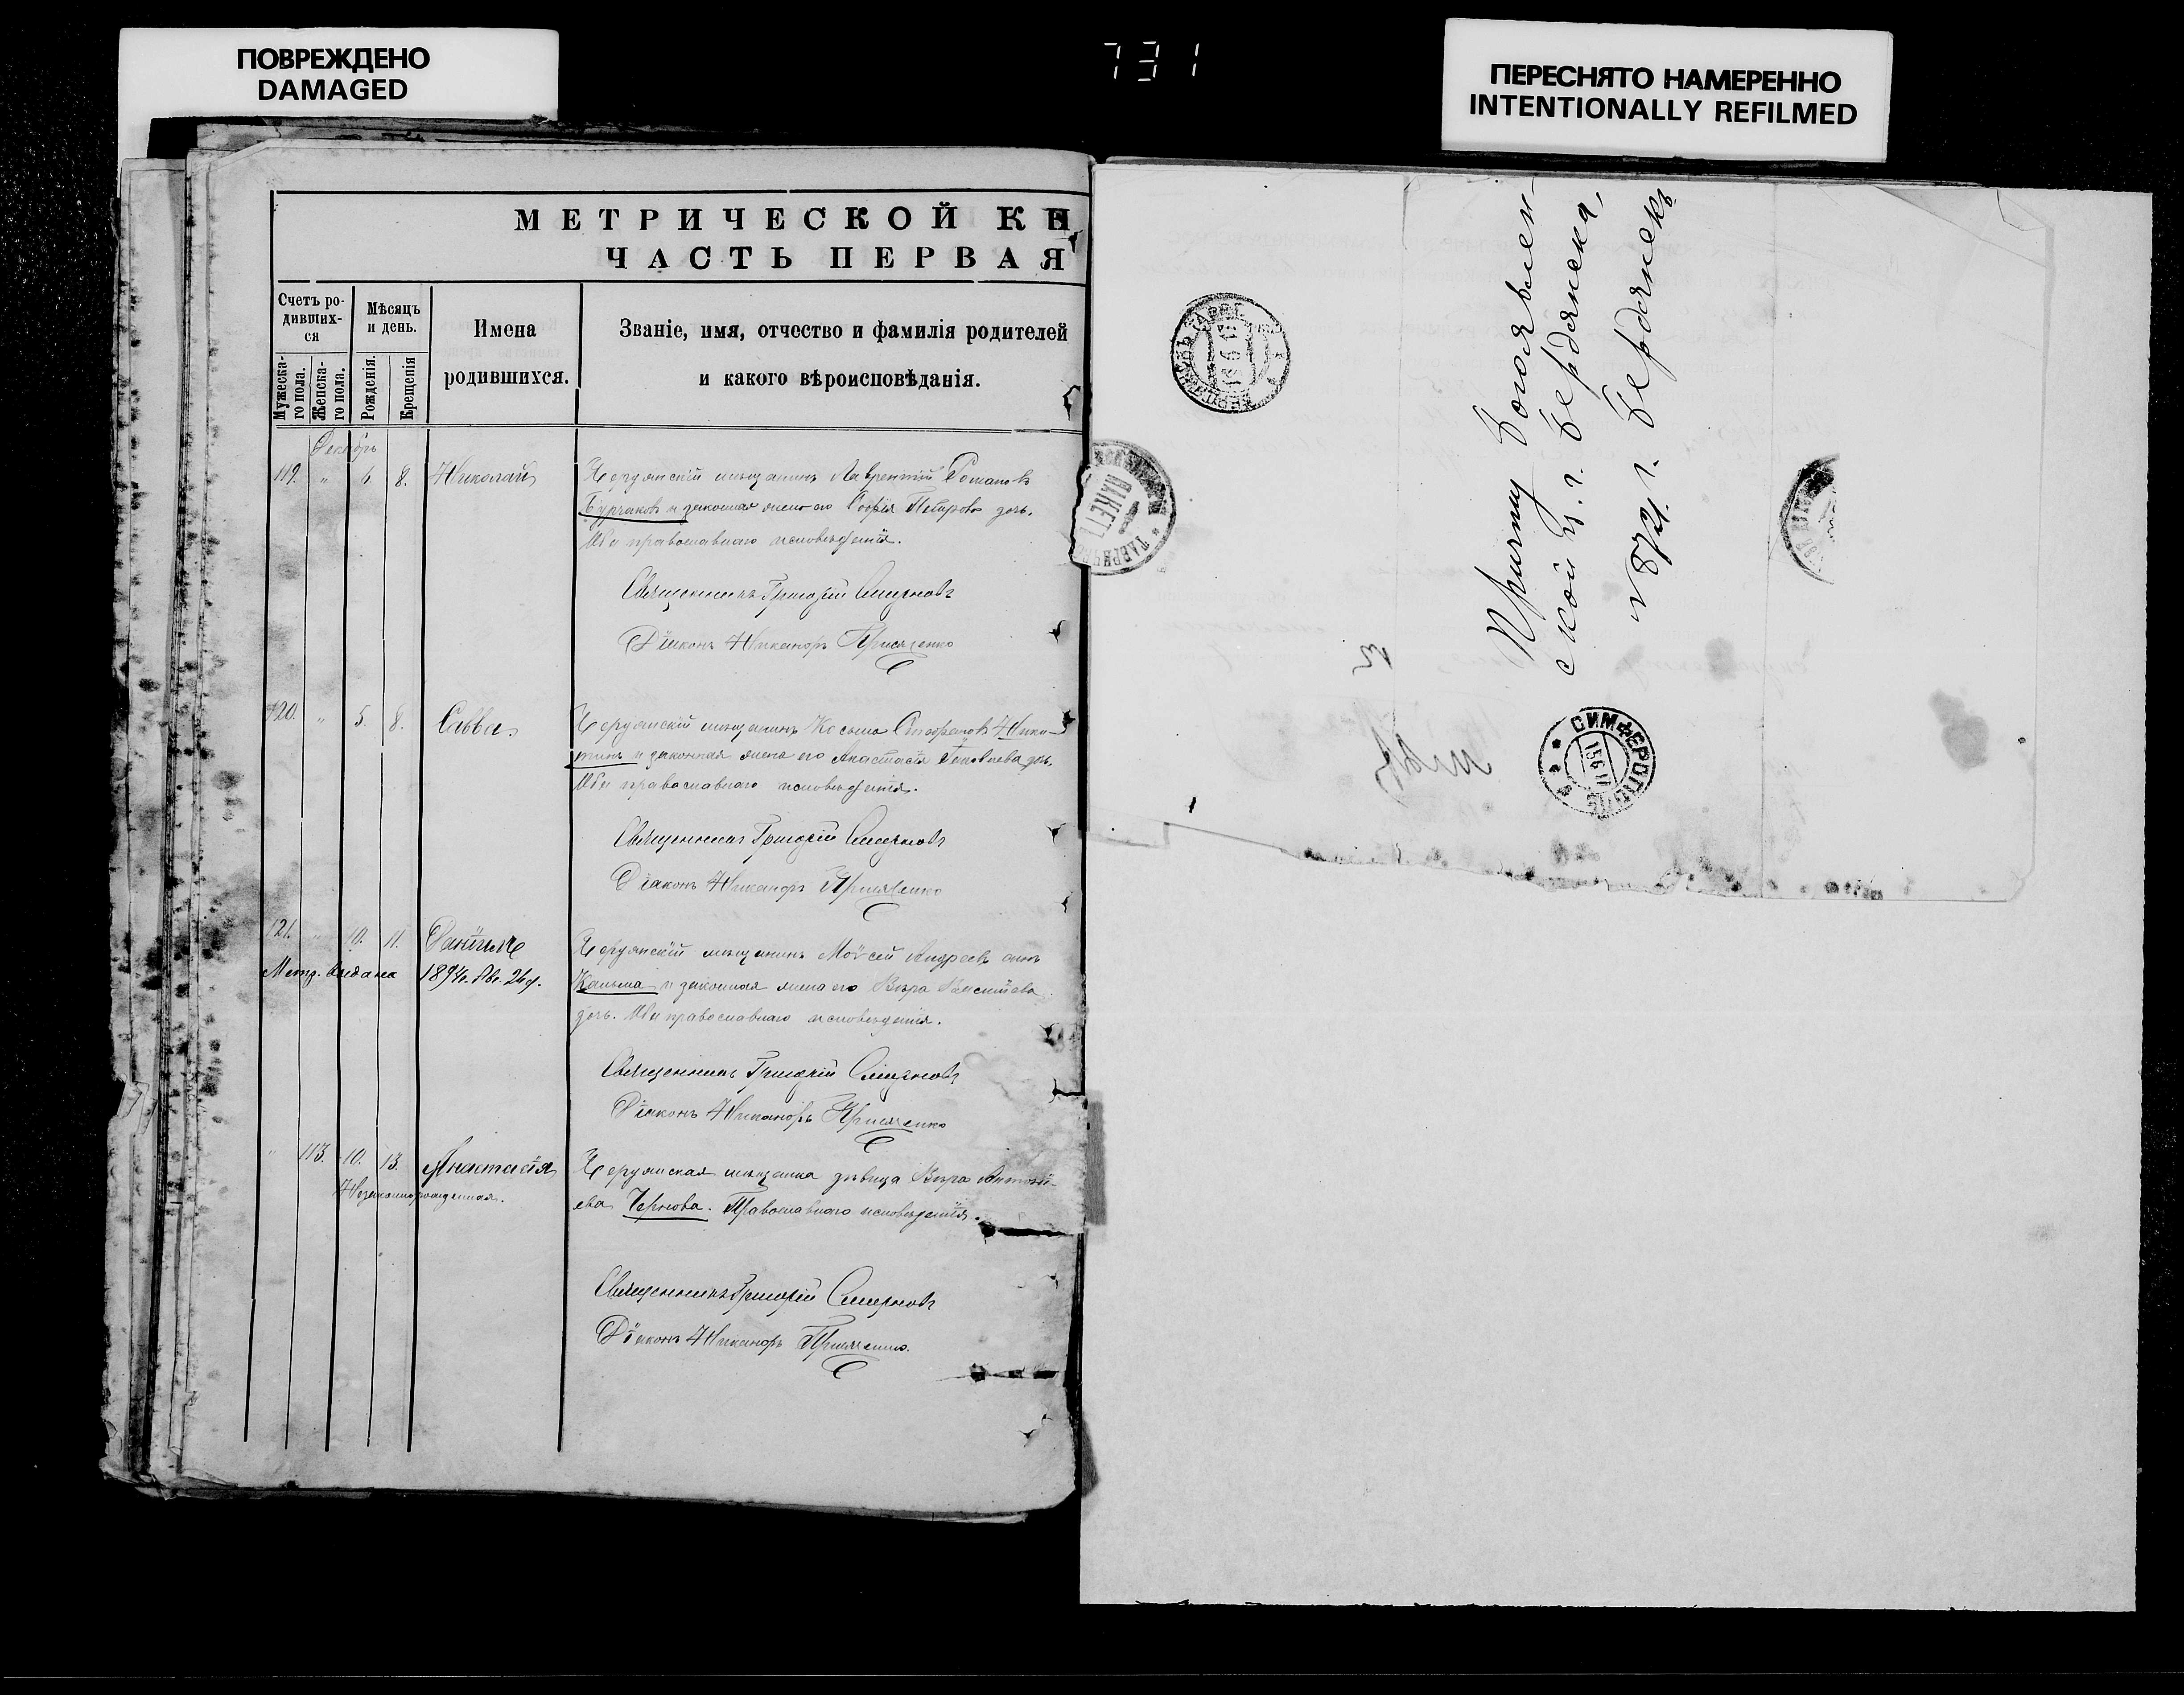 ПОВРЕЖДЕНО
DAMAGED
731
ПЕРЕСНЯТО НАМЕРЕННО
INTENTIONALLY REFILMED
МЕТРИЧЕСКОЙ КН
ЧАСТЬ ПЕРВАЯ
Счетъ ро-
дивших-
ся
Мужеска-
го пола.
Женска-
го пола.
Мѣсяцъ
и день.
Рожденія.
Крещенія
Имена
родившихся.
Званіе, имя, отчество и фамилія родителей
и какого вѣроисповѣданія.
Декабрь
119. " 6. 8. Николай
мѣщанинъ Лаврентій Романовъ
Бурлаковъ и законная жена его Софія Петрова дочь.
Оба православнаго исповѣданія.
Священникъ Григорій Смирновъ
Діаконъ Никаноръ
120. " 5. 8. Савва
мѣщанинъ Косьма Стефановъ Ники-
тинъ и законная жена его Анастасія дочь.
Оба православнаго исповѣданія.
Священникъ Григорій Смирновъ
Діаконъ Никаноръ
121. " 10. 11. Даніилъ
Метр. выдана 1894г. Авг. 26 д.
мѣщанинъ Моѵсей Андреевъ сынъ
и законная жена его Вѣра
дочь. Оба православнаго исповѣданія.
Священникъ Григорій Смирновъ
Діаконъ Никаноръ
" 113. 10. 13. Анастасія
Незаконнорожденная.
мѣщанка дѣвица Вѣра Антоні-
ева Чернова. Православнаго исповѣданія.
Священникъ Григорій Смирновъ
Діаконъ Никаноръ
Причту Богоявлен-
ской ц. г. Бердянска,
№ 8721 г. Бердянскъ
ПАКЕТ
СИМФЕРОПОЛЬ
15 6 11
16 6 11